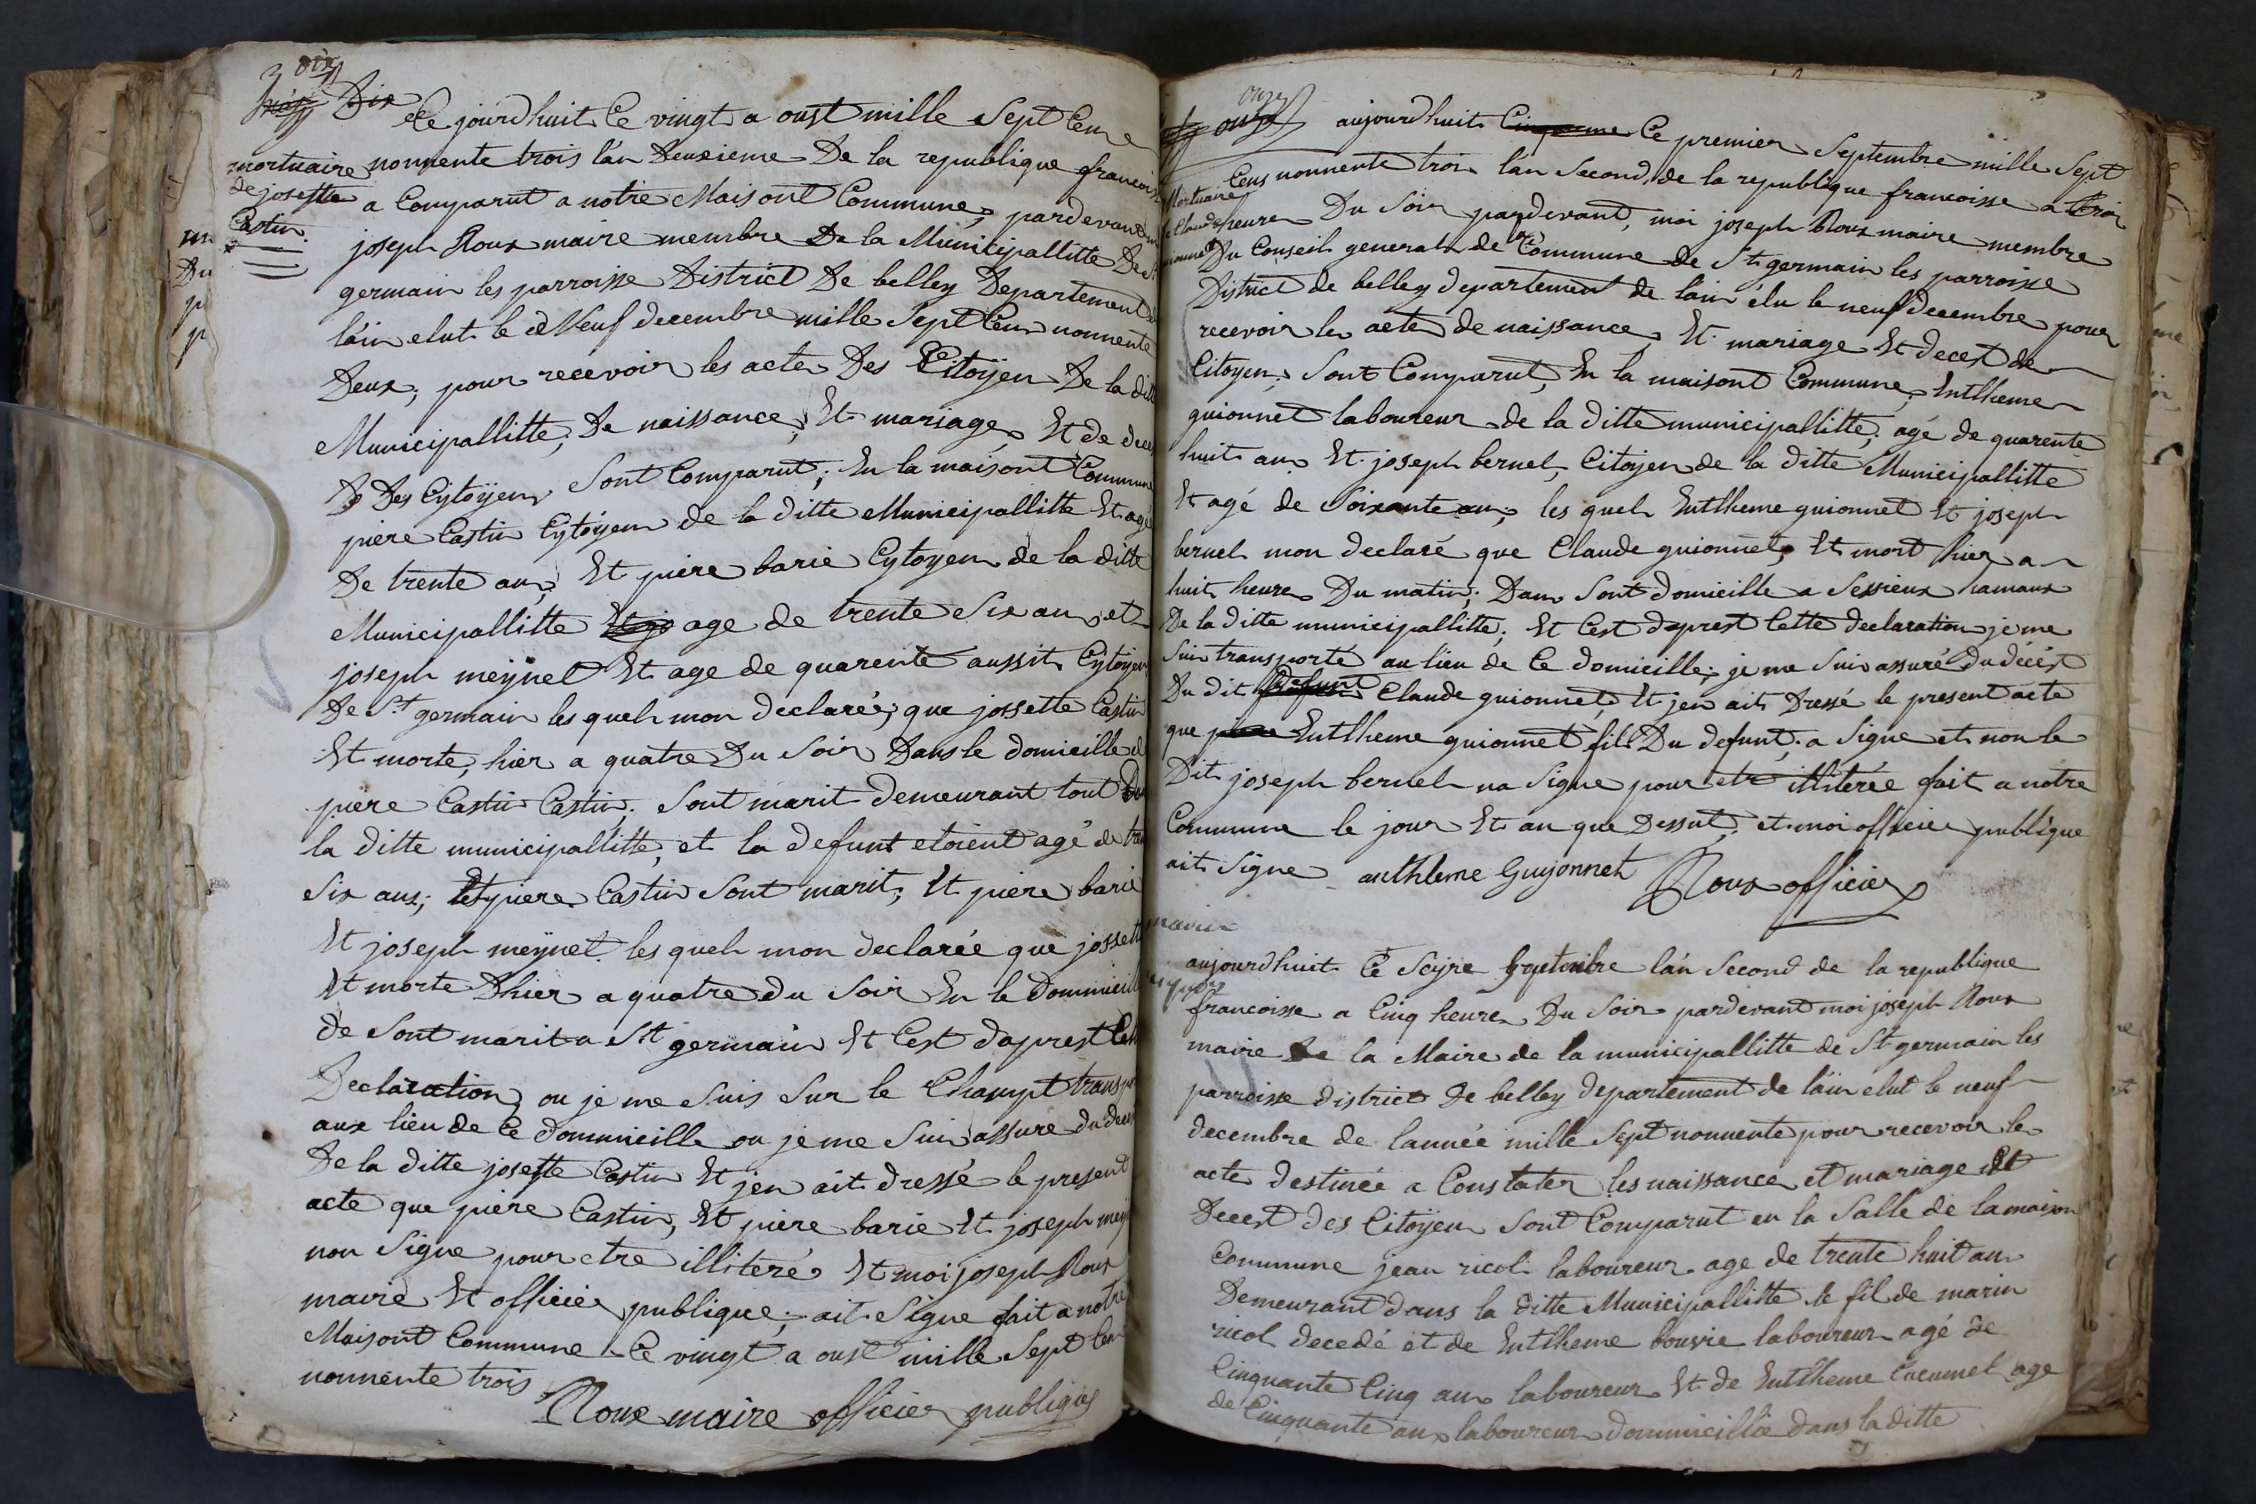 dix
Dix
Ce jourd'huit Ce vingt a oust mille Sept Cens
mortuaire
de josette
Castin
nonnente trois lán Deuxieme De la republique francois
a Comparut a notre Maisont Commune, pardevant
joseph Roux maire membre De la Municipallitte De St
germain les parroisse District De belley Departement de
láin elut le Neuf decembre mille Sept Cens nonnente
Deux; pour recevoir les actes Des Citoÿen De la ditte
Municipallitte; De naissance, Et mariage, Et de deces
Des Cytoÿens Sont Comparut; En la maisont Commune
piere Castin Cytoÿen de la ditte Municipallitte Et agé
De trente ans, Et piere barie Cytoyen de la ditte
Municipallitte age de trente Six ans, et
joseph meÿnet Et age de quarente aussit Cytoÿen
De St germain les quels mon declarée, que jossette Castin
Et morte, hier a quatre Du Soir Dans le domicille de
piere Castin Castin, Sont marit demeurant tout Dans
la ditte municipallitte, et la defunt etoient agé de trente
Six ans; Et piere Castin Sont marit, Et piere barie
Et joseph meÿnet les quels mon declarée que jossette
Et morte Dhier a quatre du Soir En le dommicille
de Sont marit a St germain Et Cest daprest Cette
Declaration, ou je me Suis Sur le Champt transporté
aux lieu de Ce dommicille ou je me Suis assure du deces
De la ditte josette Castin Et jen ait dressé le present
acte que piere Castin, Et piere barie Et joseph meÿ
non Signe pour etre illiteré Et moi joseph Roux
maire Et officier publique, ait Signe fait a notre
Maisont Commune Ce vingt a oust mille Sept Cens
nonnente trois
Roux maire officier publique
onze
onze
aujourdhuit Ce premier Septembre mille Sept
Cens nonnente trois lan Second de la republique francoisse a trois
Mortuaire
de Claude
guionnet
heures Du Soir pardevant, moi joseph Roux maire membre
Du Conseil general de Commune de St germain les parroisse
District de belley departement de láin élu le neuf decembre pour
recevoir les actes de naissance, Et mariage Et decest de
Citoyen, Sont Comparut, En la maisont Commune, Entheme
guionnet laboureur de la ditte municipallitte, agé de quarente
huit ans Et joseph bernel, Citoÿen de la ditte Municipallitte
Et agé de Soixante ans, les quels Entheme guionnet Et joseph
bernel mon declaré que Claude guionnet, Et mort hier a
huit heures Du matin, Dans Sont domicille a Sessieux hamaux
De la ditte municipallitte; Et Cest daprest Cette declaration je me
Suis transporté au lieu de Ce domicille, je me Suis assuré du decést
Du dit Claude guionnet, Et jen ait Dressé le present acte
que Entheme guionnet fils Du defunt, a Signe et non le
Dit joseph bernel na Signe pour etre illiterée fait a notre
Commune le jour Et an que Dessut, et moi officier publique
ait Signe anthleme Guyonnet Roux officier
aujourdhuit Cé Seize 7bre lán Second de la republique
francoisse a Cinq heures Du Soir pardevant moi joseph Roux
maire De la Maire de la municipallitte de St germain les
parroisse district De belley departement de láin elut le neuf
decembre de lannée mille Sept nonnente pour recevoir les
actes destinée a Constater les naissance et mariage Et
Decest des Citoyen Sont Comparut en la Salle de la maison
Commune jean ricol laboureur age de trente huit an
Demeurant dans la ditte Municipallitte le fil de marin
ricol decedé et de Entheme bouvie laboureur agé de
Cinquante Cinq ans laboureur Et de Entheme Cucumel age
de Cinquante ans laboureur dommicillié dans la ditte